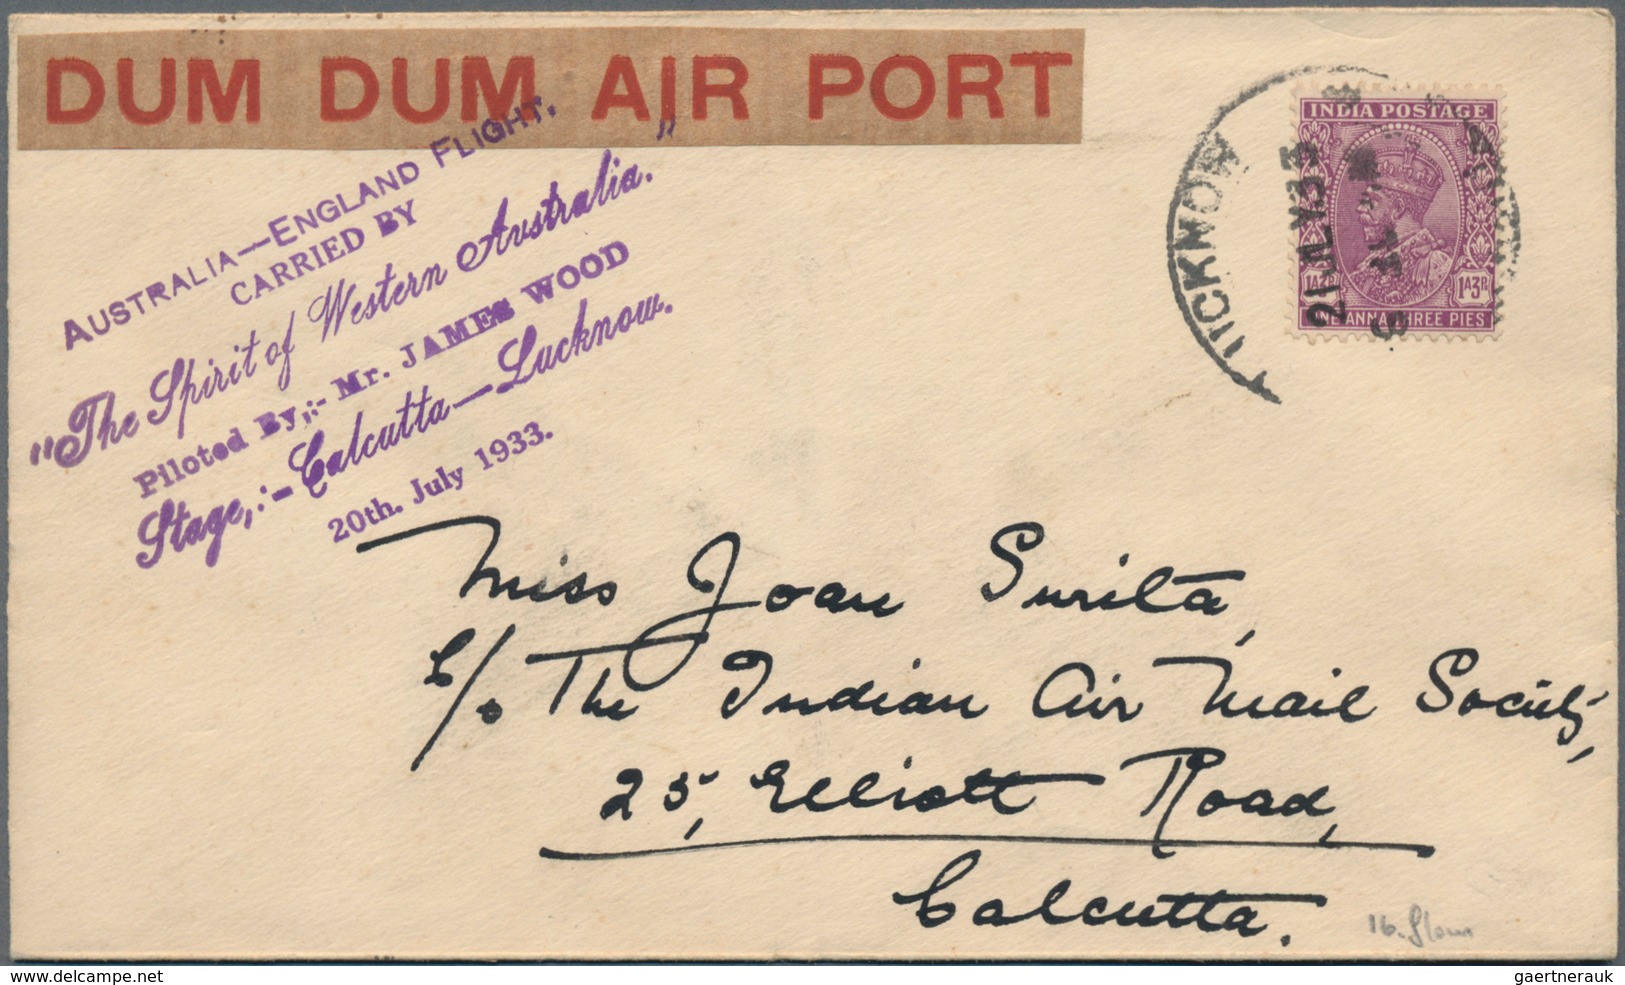 DUM DUM AIR PORT
AUSTRALIA—ENGLAND FLIGHT.
CARRIED BY
"The Spirit of Western Australia."
Piloted By,:- Mr. JAMES WOOD
Stage,:- Calcutta—Lucknow.
20th. July 1933.
LUCKNOW
21 JLY 33
INDIA POSTAGE
1A3P
1A3P
ONE ANNA THREE PIES
Miss Joan Surita,
C/o The Indian Air Mail Society,
25, Elliott Road,
Calcutta.
16.
www.delcampe.net
gaertnerauk